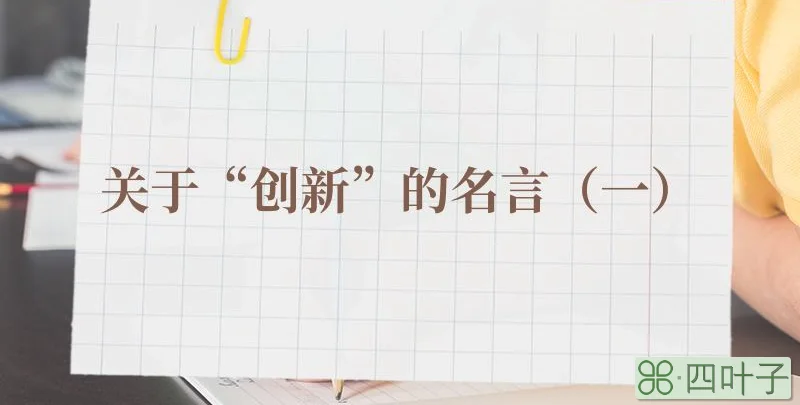 关于“创新”的名言（一）
⌘·四叶子